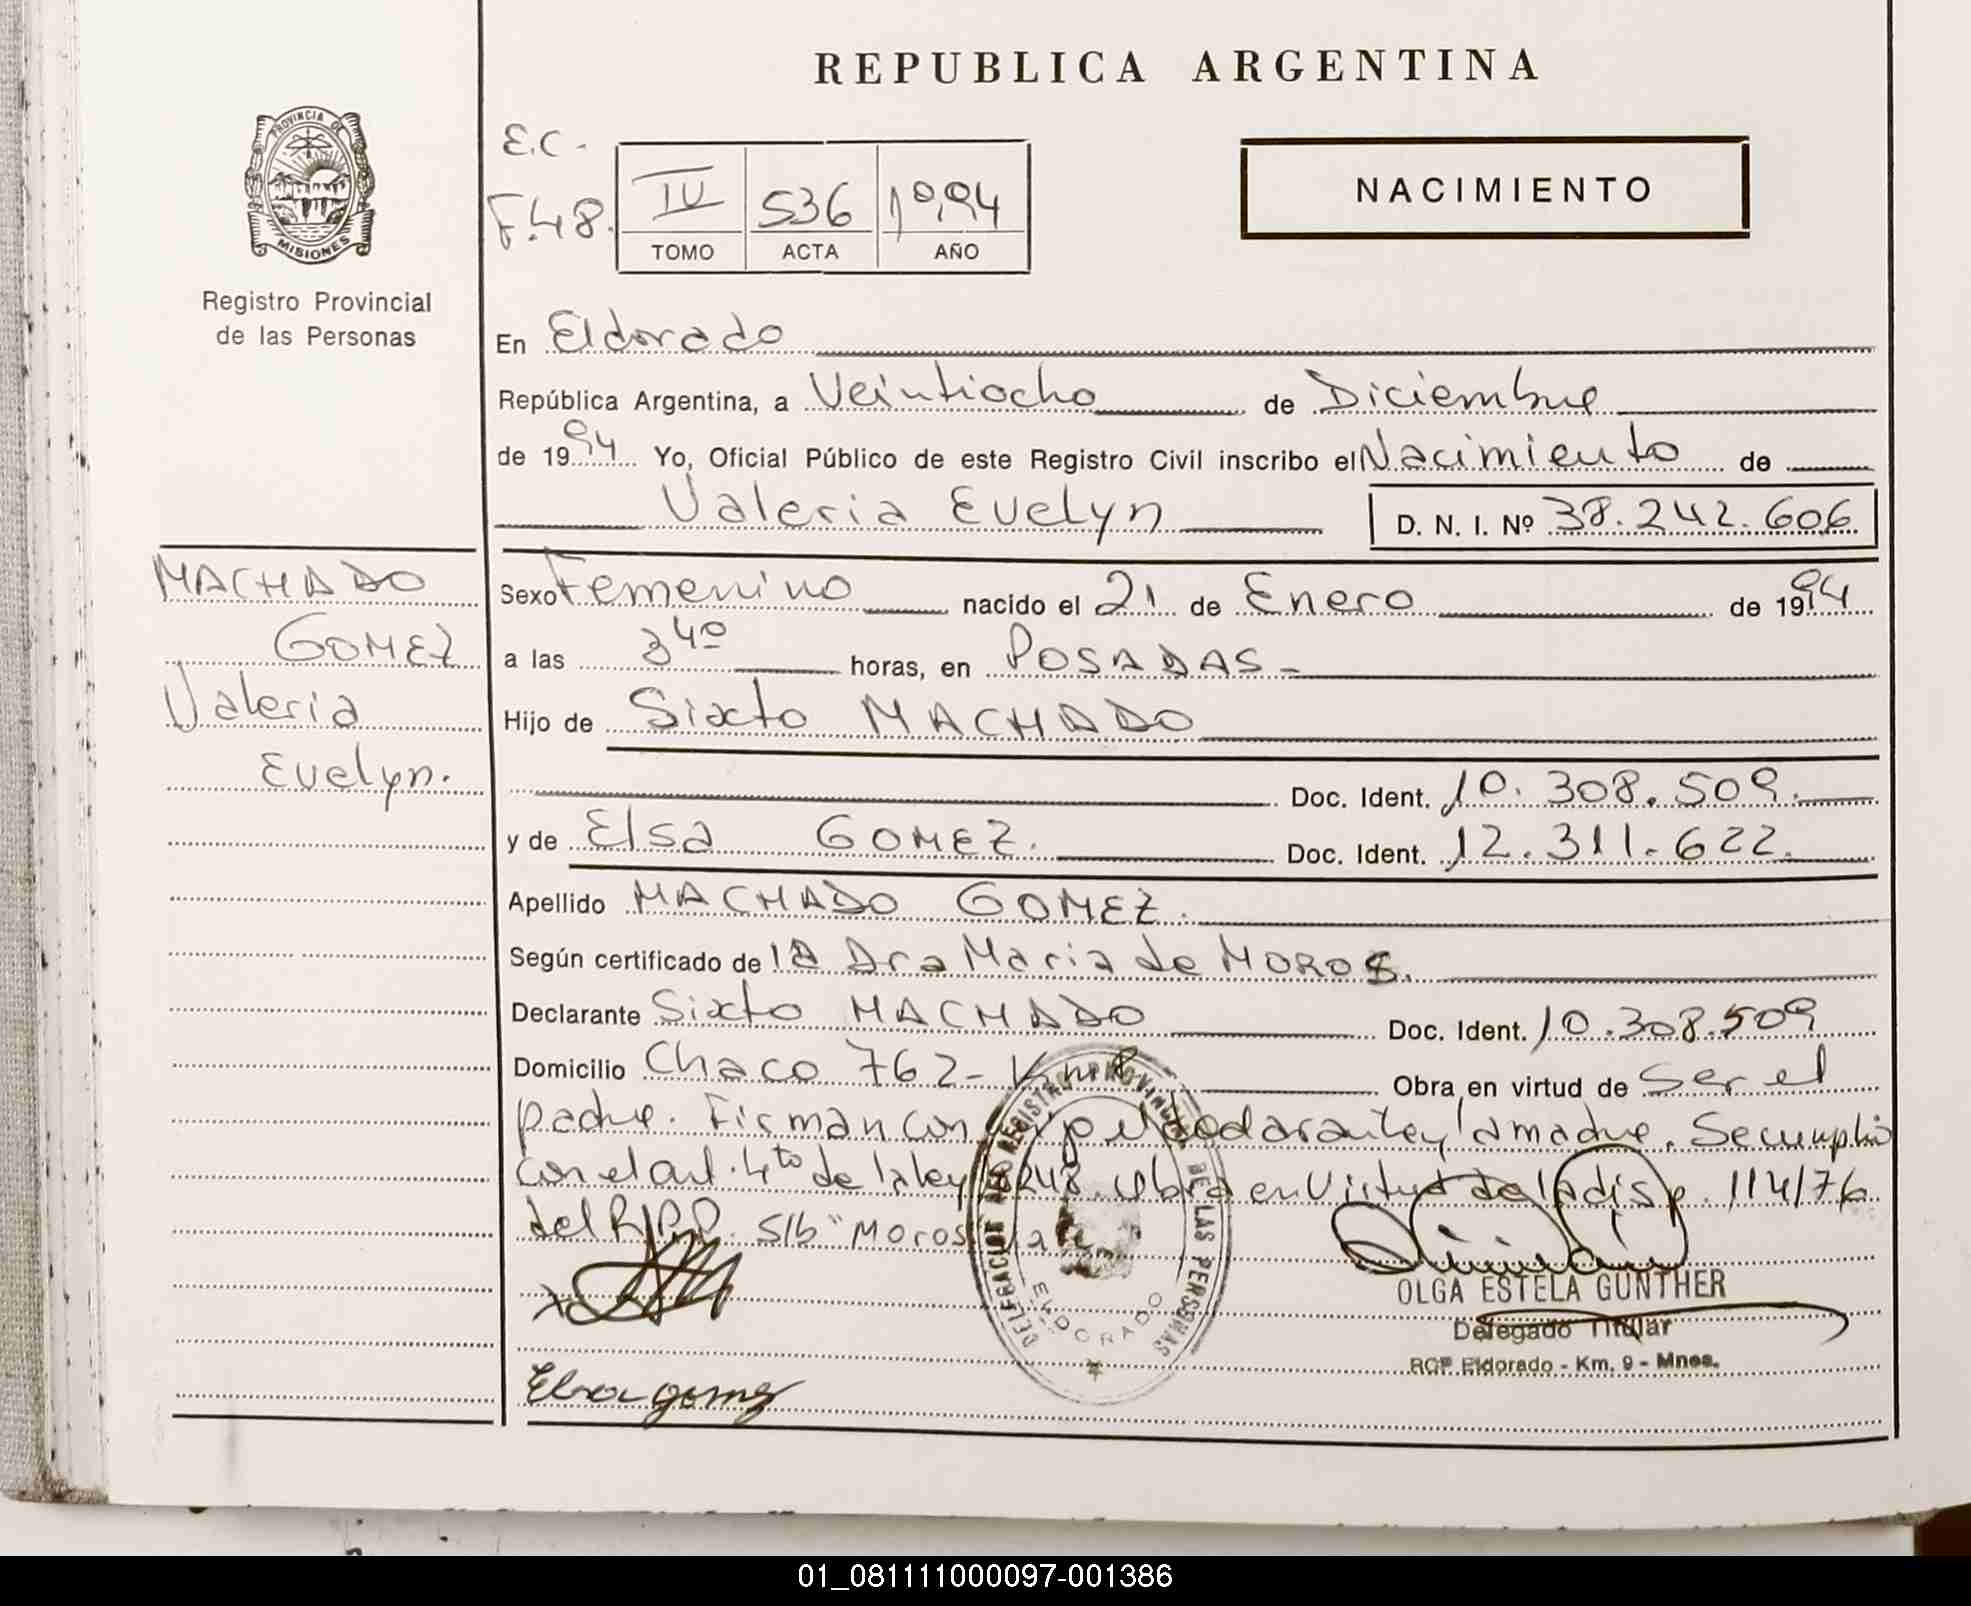 REPUBLICA ARGENTINA
PROVINCIA DE
MISIONES
Registro Provincial
de las Personas
E.C.
F.48.
IV 536 1994
TOMO ACTA AÑO
NACIMIENTO
En Eldorado
República Argentina, a Veintiocho de Diciembre
de 1994 Yo, Oficial Público de este Registro Civil inscribo el Nacimiento de
Valeria Evelyn D. N. I. Nº 38.242.606
MACHADO
GOMEZ
Valeria
Evelyn.
Sexo Femenino nacido el 21 de Enero de 1994
a las 3 40 horas, en POSADAS-
Hijo de Sixto MACHADO
Doc. Ident. 10.308.509.
y de Elsa GOMEZ. Doc. Ident. 12.311.622.
Apellido MACHADO GOMEZ.
Según certificado de la Dra Maria de MOROS.
Declarante Sixto MACHADO Doc. Ident. 10.308.509
Domicilio Chaco 762- Km 8 Obra en virtud de Ser el
padre. Firman con el declarante y la madre. Se cumplio
con el art. 4to de la ley 18248. Obra en Virtud de la disp. 114/76
del R.P.P. S/b "MOROS" vale
DELEGACION DEL REGISTRO PROVINCIAL DE LAS PERSONAS
ELDORADO
OLGA ESTELA GUNTHER
Delegado Titular
RCP Eldorado - Km. 9 - Mnes.
Elsa gomez
01_081111000097-001386